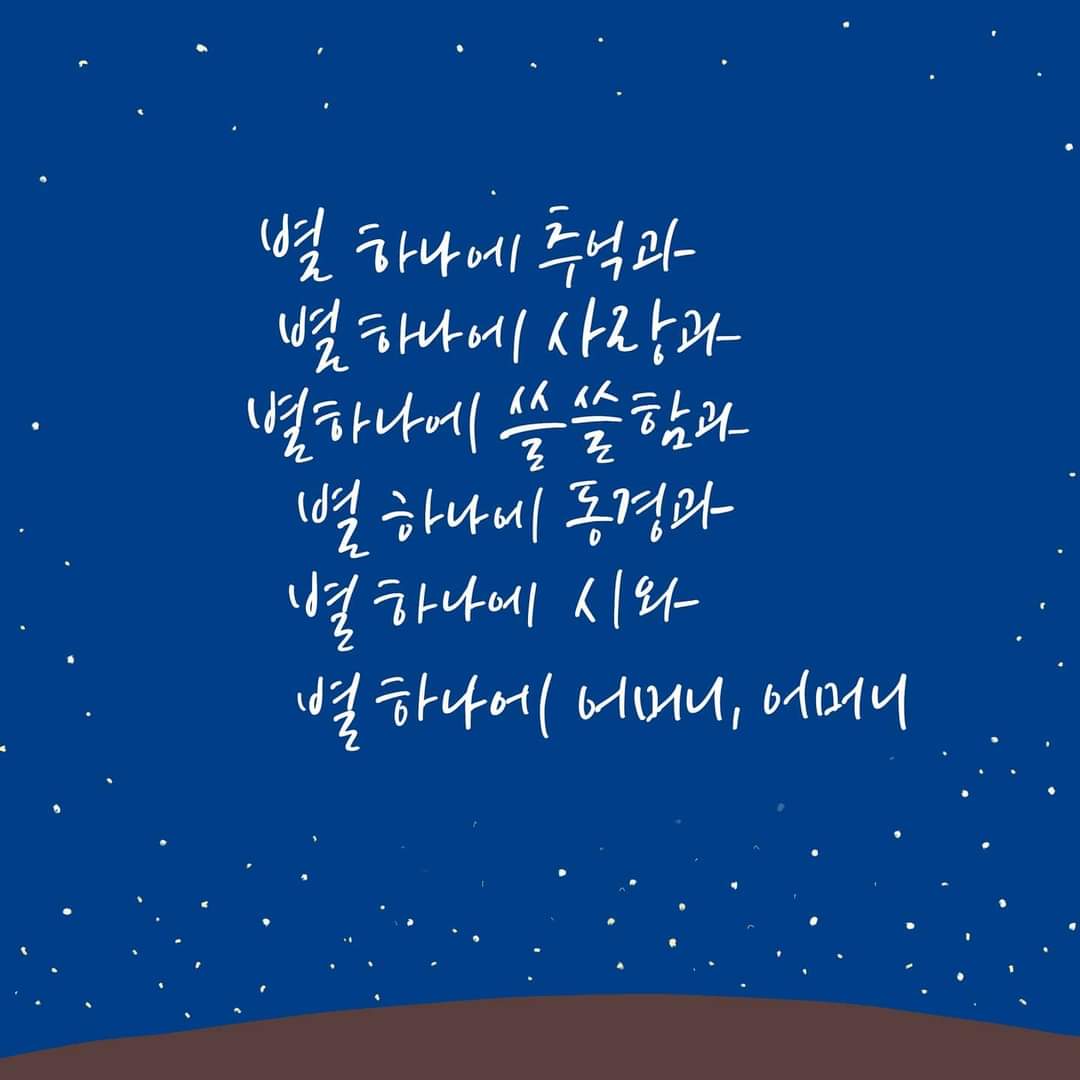 별 하나에 추억과
별 하나에 사랑과
별하나에 쓸쓸함과
별 하나에 동경과
별 하나에 시와
별 하나에 어머니, 어머니